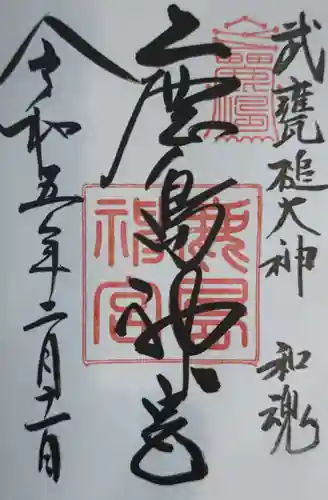 武甕槌大神 和魂
上鹿島神宮
鹿島神宮
令和五年二月十一日